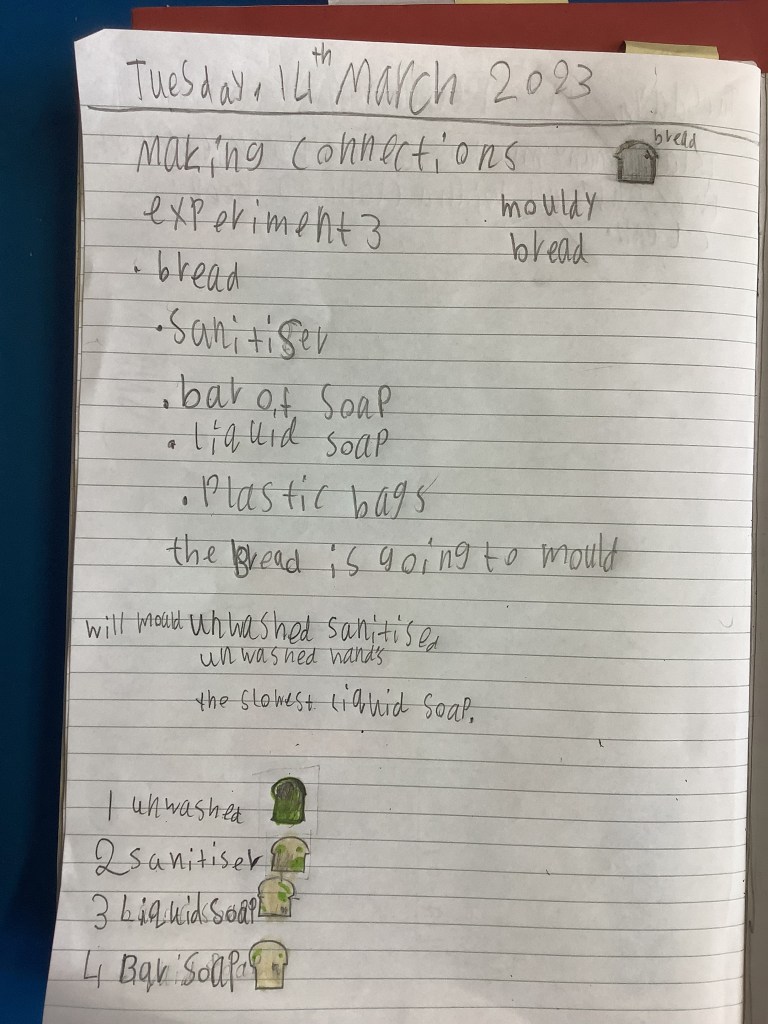 Tuesday, 14th March 2023
Making connections
bread
experiment 3
mouldy
bread
• bread
• Sanitiser
• bar of soap
• liquid soap
• Plastic bags
the Bread is going to mould
will mould unwashed sanitised
unwashed hands
the slowest liquid soap.
1 unwashed
2 sanitiser
3 Liquid soap
4 Bar soap